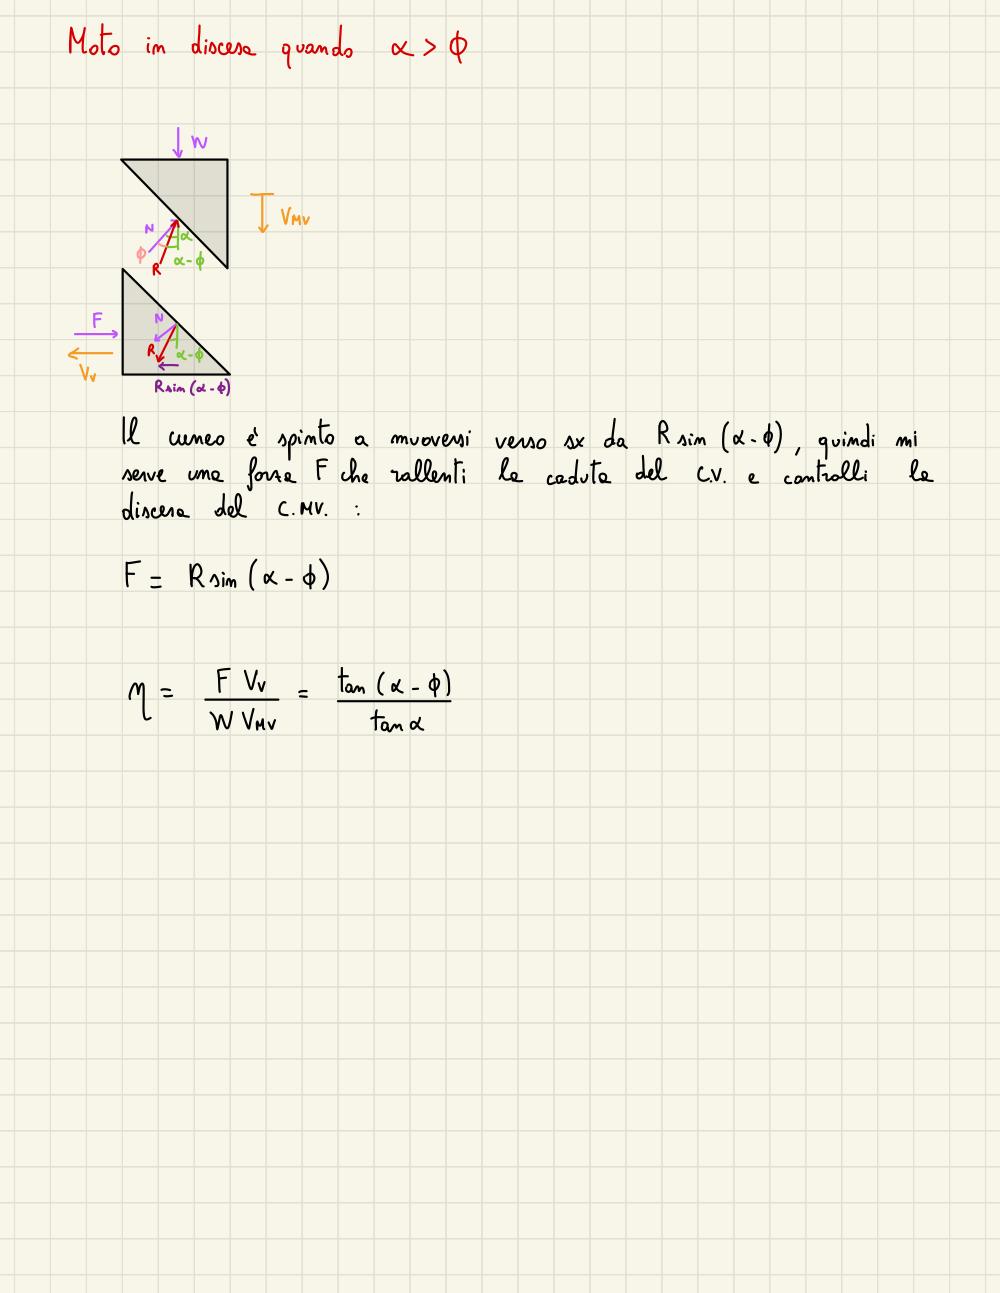 Moto in discesa quando α > ϕ
W
V_MV
N
α
ϕ
α-ϕ
R
F
N
R
α-ϕ
V_v
R sin (α-ϕ)
Il cuneo è spinto a muoversi verso sx da R sin (α-ϕ), quindi mi
serve una forza F che rallenti la caduta del C.V. e controlli la
discesa del C.MV. :
F = R sin (α - ϕ)
η = F V_v / W V_MV = tan (α - ϕ) / tan α